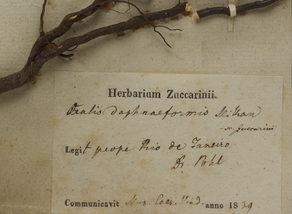 Herbarium Zuccarinii.
Oxalis daphnaeformis Mikan
Zuccarini
Legit prope Rio de Janeiro
Dr Pohl
Communicavit Mus. Caes. Vind. anno 1839